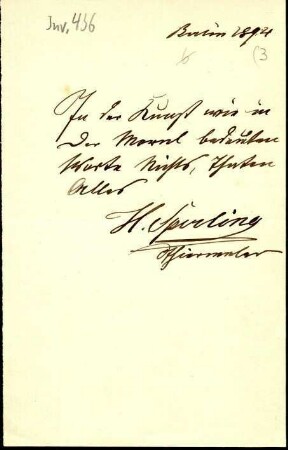 Inv. 436
Berlin 1892
(3
In der Kunst wie in
der Moral bedeuten
Worte Nichts, Thaten
Alles
H. Sperling
Thiermaler